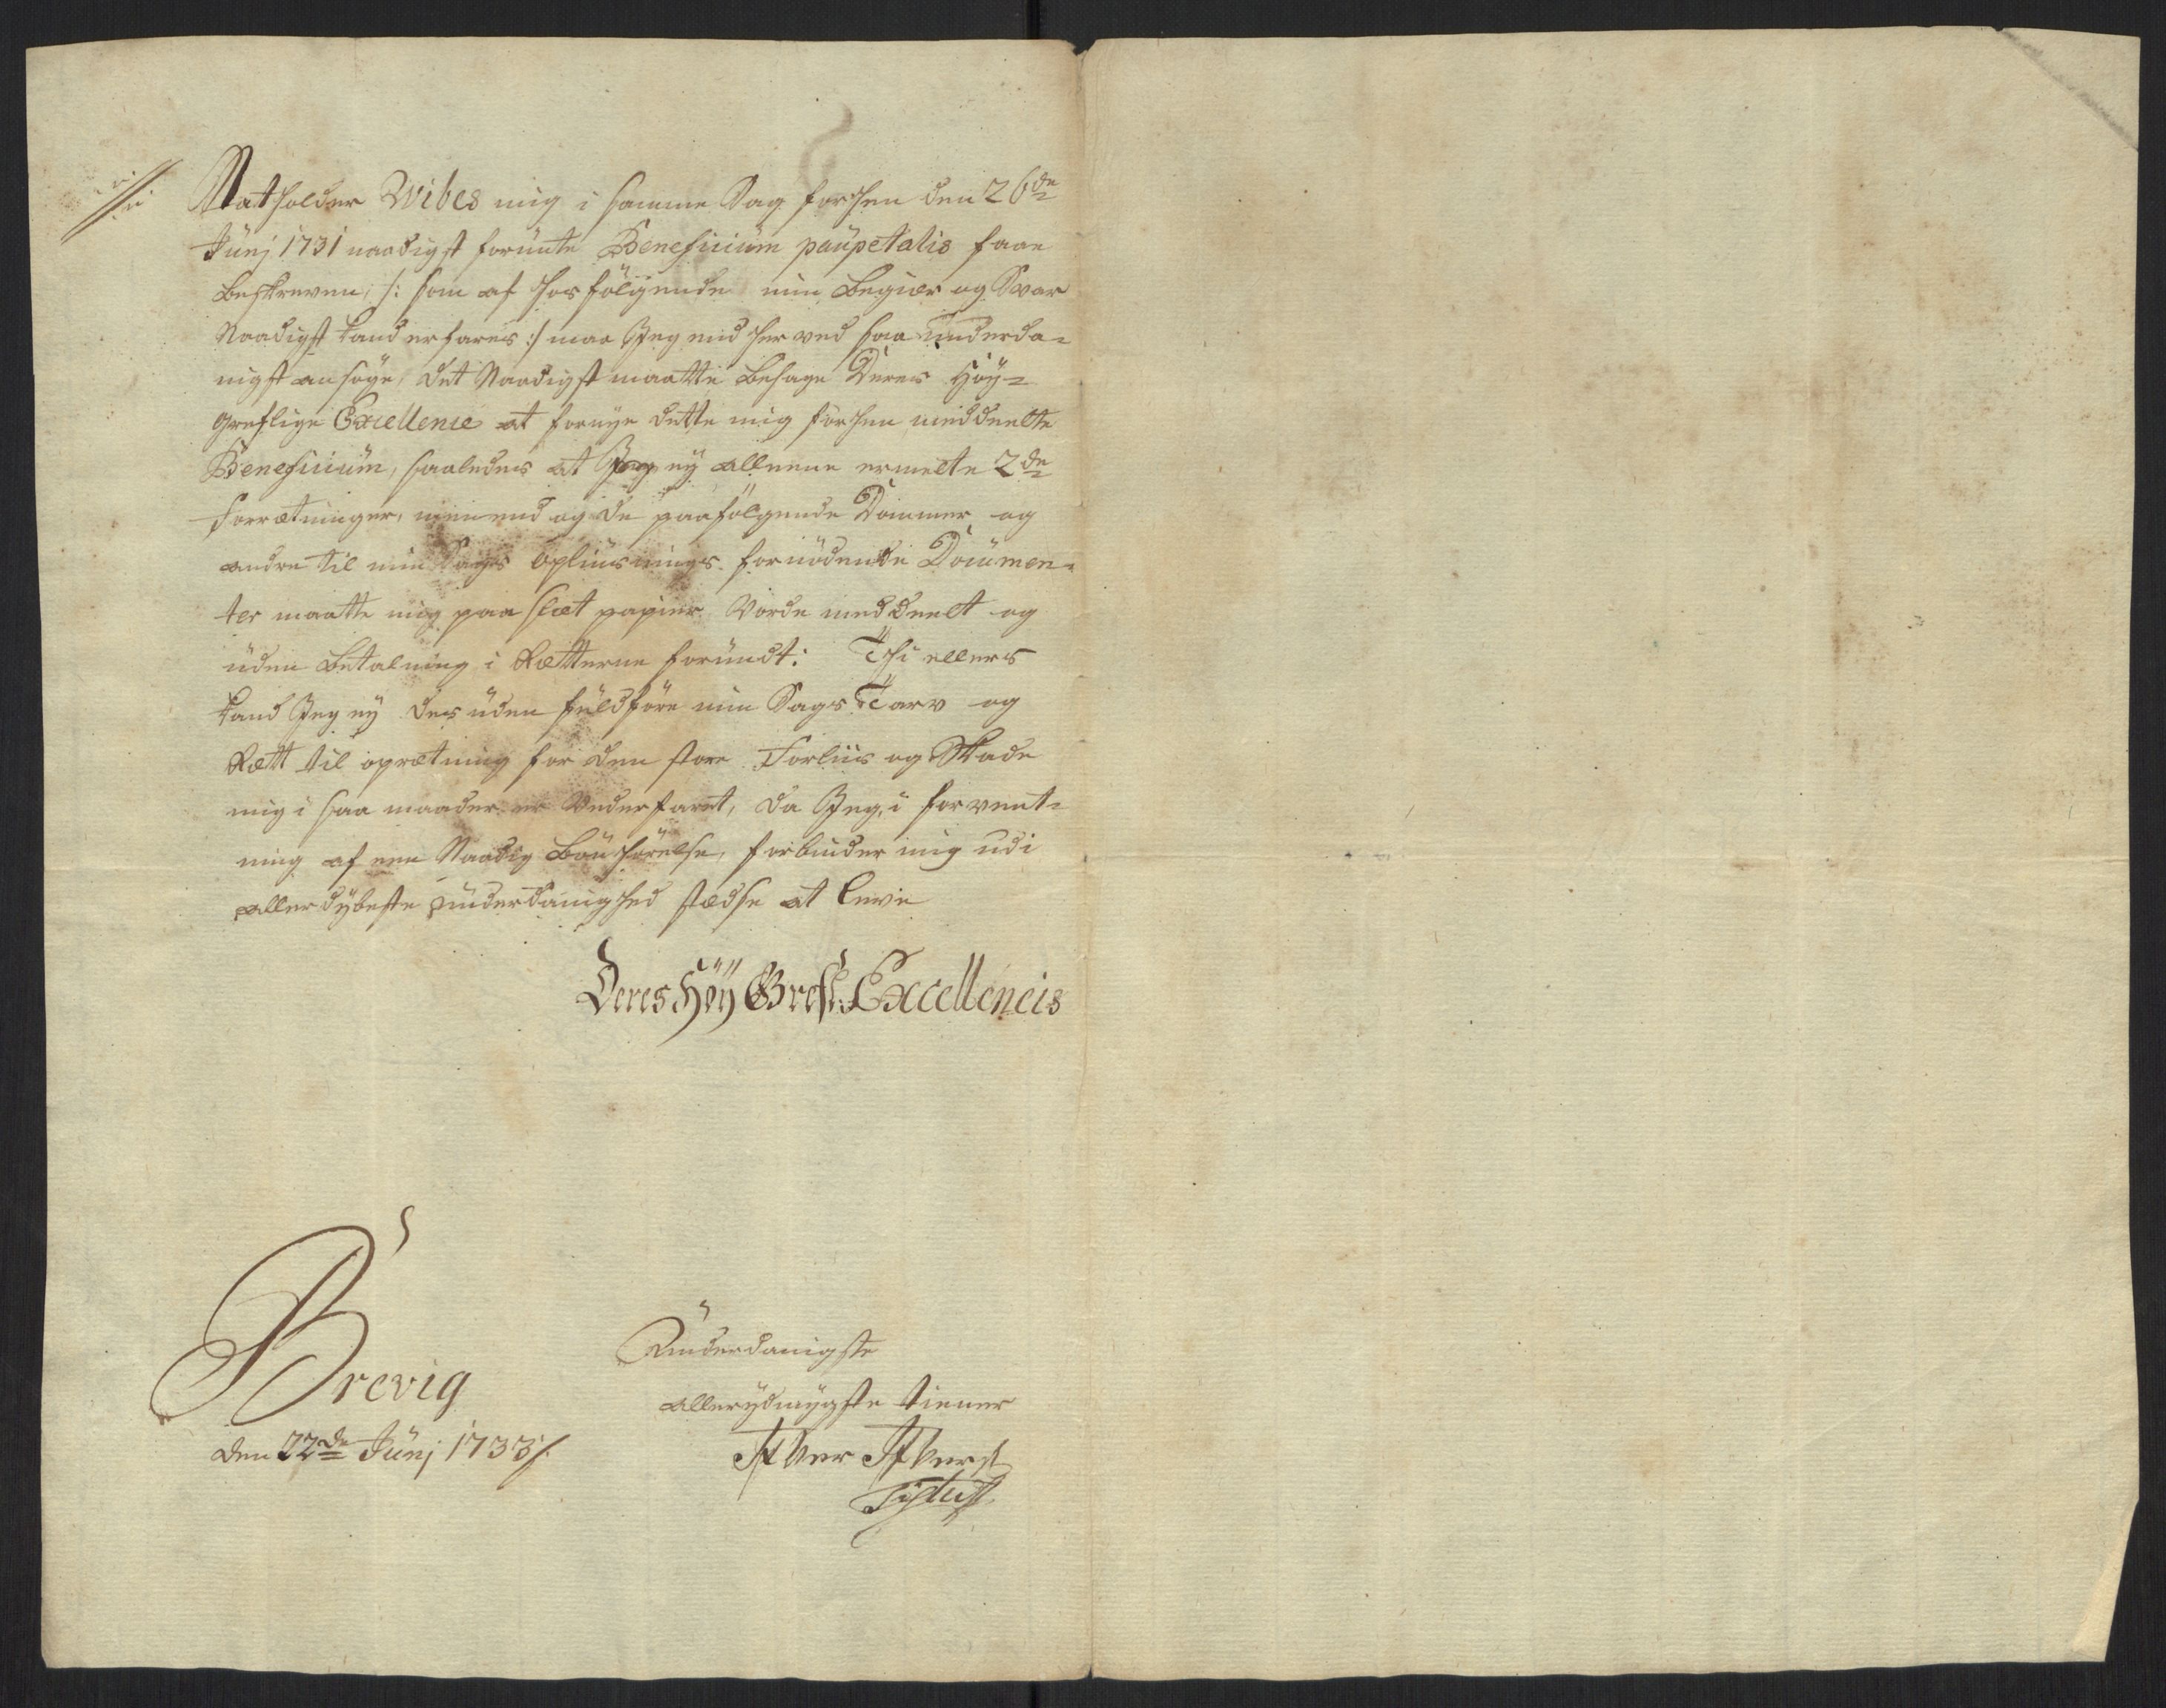 Statholder Wibes mig i samme Sag forhen den 26de
Junj 1731 naadigst forunte Beneficium paupetatis faae
beskreven, /: som af hosfölgende min Begiær og Svar
Naadigst kand erfares :/ maa Jeg end her ved saa underda-
nigst ansöge, det Naadigst maatte behage Deres Höy-
Greflige Excellence at fornye dette mig forhen meddeelte
Beneficium, saaledes at Jeg ey alleene ermelte 2de
Forrætninger, men end og de paafölgende Dommer og
andre til min Sags Opliusnings fornödende Documen-
ter maatte mig paa slæt papiir Vorde meddeelt og
uden Betalning i Rætterne forundt: Thi ellers
kand Jeg ey des uden fuldföre min Sags Tarv og
Rætt til oprætning for den store Forliis og Skade
mig i saa maader er Vederfaret, da Jeg, i forvent-
ning af een Naadig Bönhörelse, forbinder mig udi
allerdybeste underdanighed stædse at leve
Deres Höy Grefl: Excellencis
Brevig
den 22de Junj 1733/.
Underdanigste
allerydmygste tiener
Ifver Ifvers